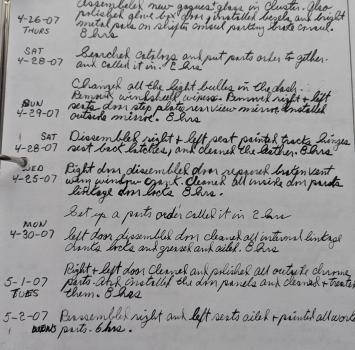 Assembled new gauges glass in Cluster. Also
4-26-07 polished glove box door & installed bezels and bright
THURS metal parts on shifter consul parking brake consul.
8 hrs
SAT
4-28-07 Searched catalogs and put parts order to gether
and called it in. 2 hrs
Changed all the light bulbs in the dash.
Remove windshield wipers. Removed right & left
SUN seats door stop plates, rearview mirror, installed
4-29-07 outside mirror. 8 hrs
SAT Dissembled right & left seat painted tracks hinges
4-28-07 seat back latches, and cleaned the leather. 8 hrs
WED Right door, dissembled door repaired
4-25-07 window crank. Cleaned all inside door parts
linkage door locks 8 hrs.
Set up a parts order called it in 2 hrs
MON
4-30-07 left door dissembled door cleaned all internal linkage
cranks locks and greased and oiled. 8 hrs
Right & left door cleaned and polished all outside chrome
5-1-07 parts. And installed the door panels and cleaned & treated
TUES them. 8 hrs
5-2-07 Reassembled right and left seats oiled & painted all
WEDNS parts. 6 hrs.